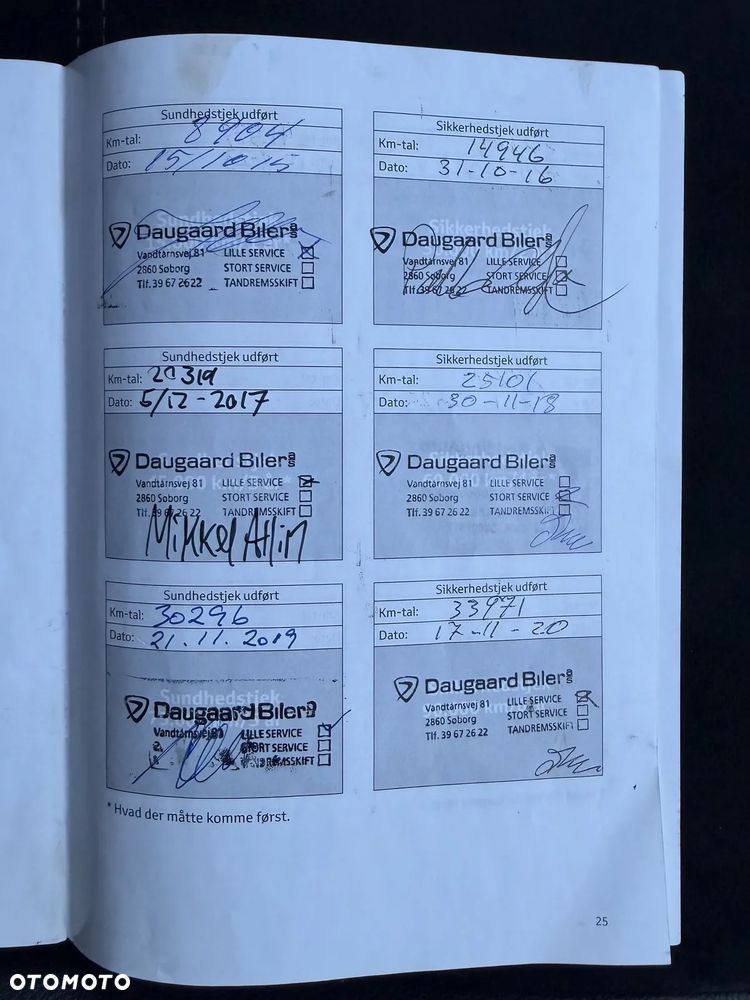 Sundhedstjek udført
Km-tal: 8904
Dato: 15/10-15
Daugaard Biler A/S
Vandtårnsvej 81 LILLE SERVICE
2860 Søborg STORT SERVICE
Tlf. 39 67 26 22 TANDREMSSKIFT
Sikkerhedstjek udført
Km-tal: 14946
Dato: 31-10-16
Sikkerhedstjek
Daugaard Biler A/S
Vandtårnsvej 81 LILLE SERVICE
2860 Søborg STORT SERVICE
Tlf. 39 67 26 22 TANDREMSSKIFT
Sundhedstjek udført
Km-tal: 20319
Dato: 5/12-2017
Daugaard Biler A/S
Vandtårnsvej 81 LILLE SERVICE
2860 Søborg STORT SERVICE
Tlf. 39 67 26 22 TANDREMSSKIFT
Mikkel
Sikkerhedstjek udført
Km-tal: 25101
Dato: 30-11-18
Daugaard Biler A/S
Vandtårnsvej 81 LILLE SERVICE
2860 Søborg STORT SERVICE
Tlf. 39 67 26 22 TANDREMSSKIFT
Sundhedstjek udført
Km-tal: 30296
Dato: 21.11.2019
Sundhedstjek
Daugaard Biler
Vandtårnsvej 81 LILLE SERVICE
STORT SERVICE
TANDREMSSKIFT
Sikkerhedstjek udført
Km-tal: 33971
Dato: 17-11-20
Daugaard Biler A/S
Vandtårnsvej 81 LILLE SERVICE
2860 Søborg STORT SERVICE
Tlf. 39 67 26 22 TANDREMSSKIFT
* Hvad der måtte komme først.
25
OTOMOTO